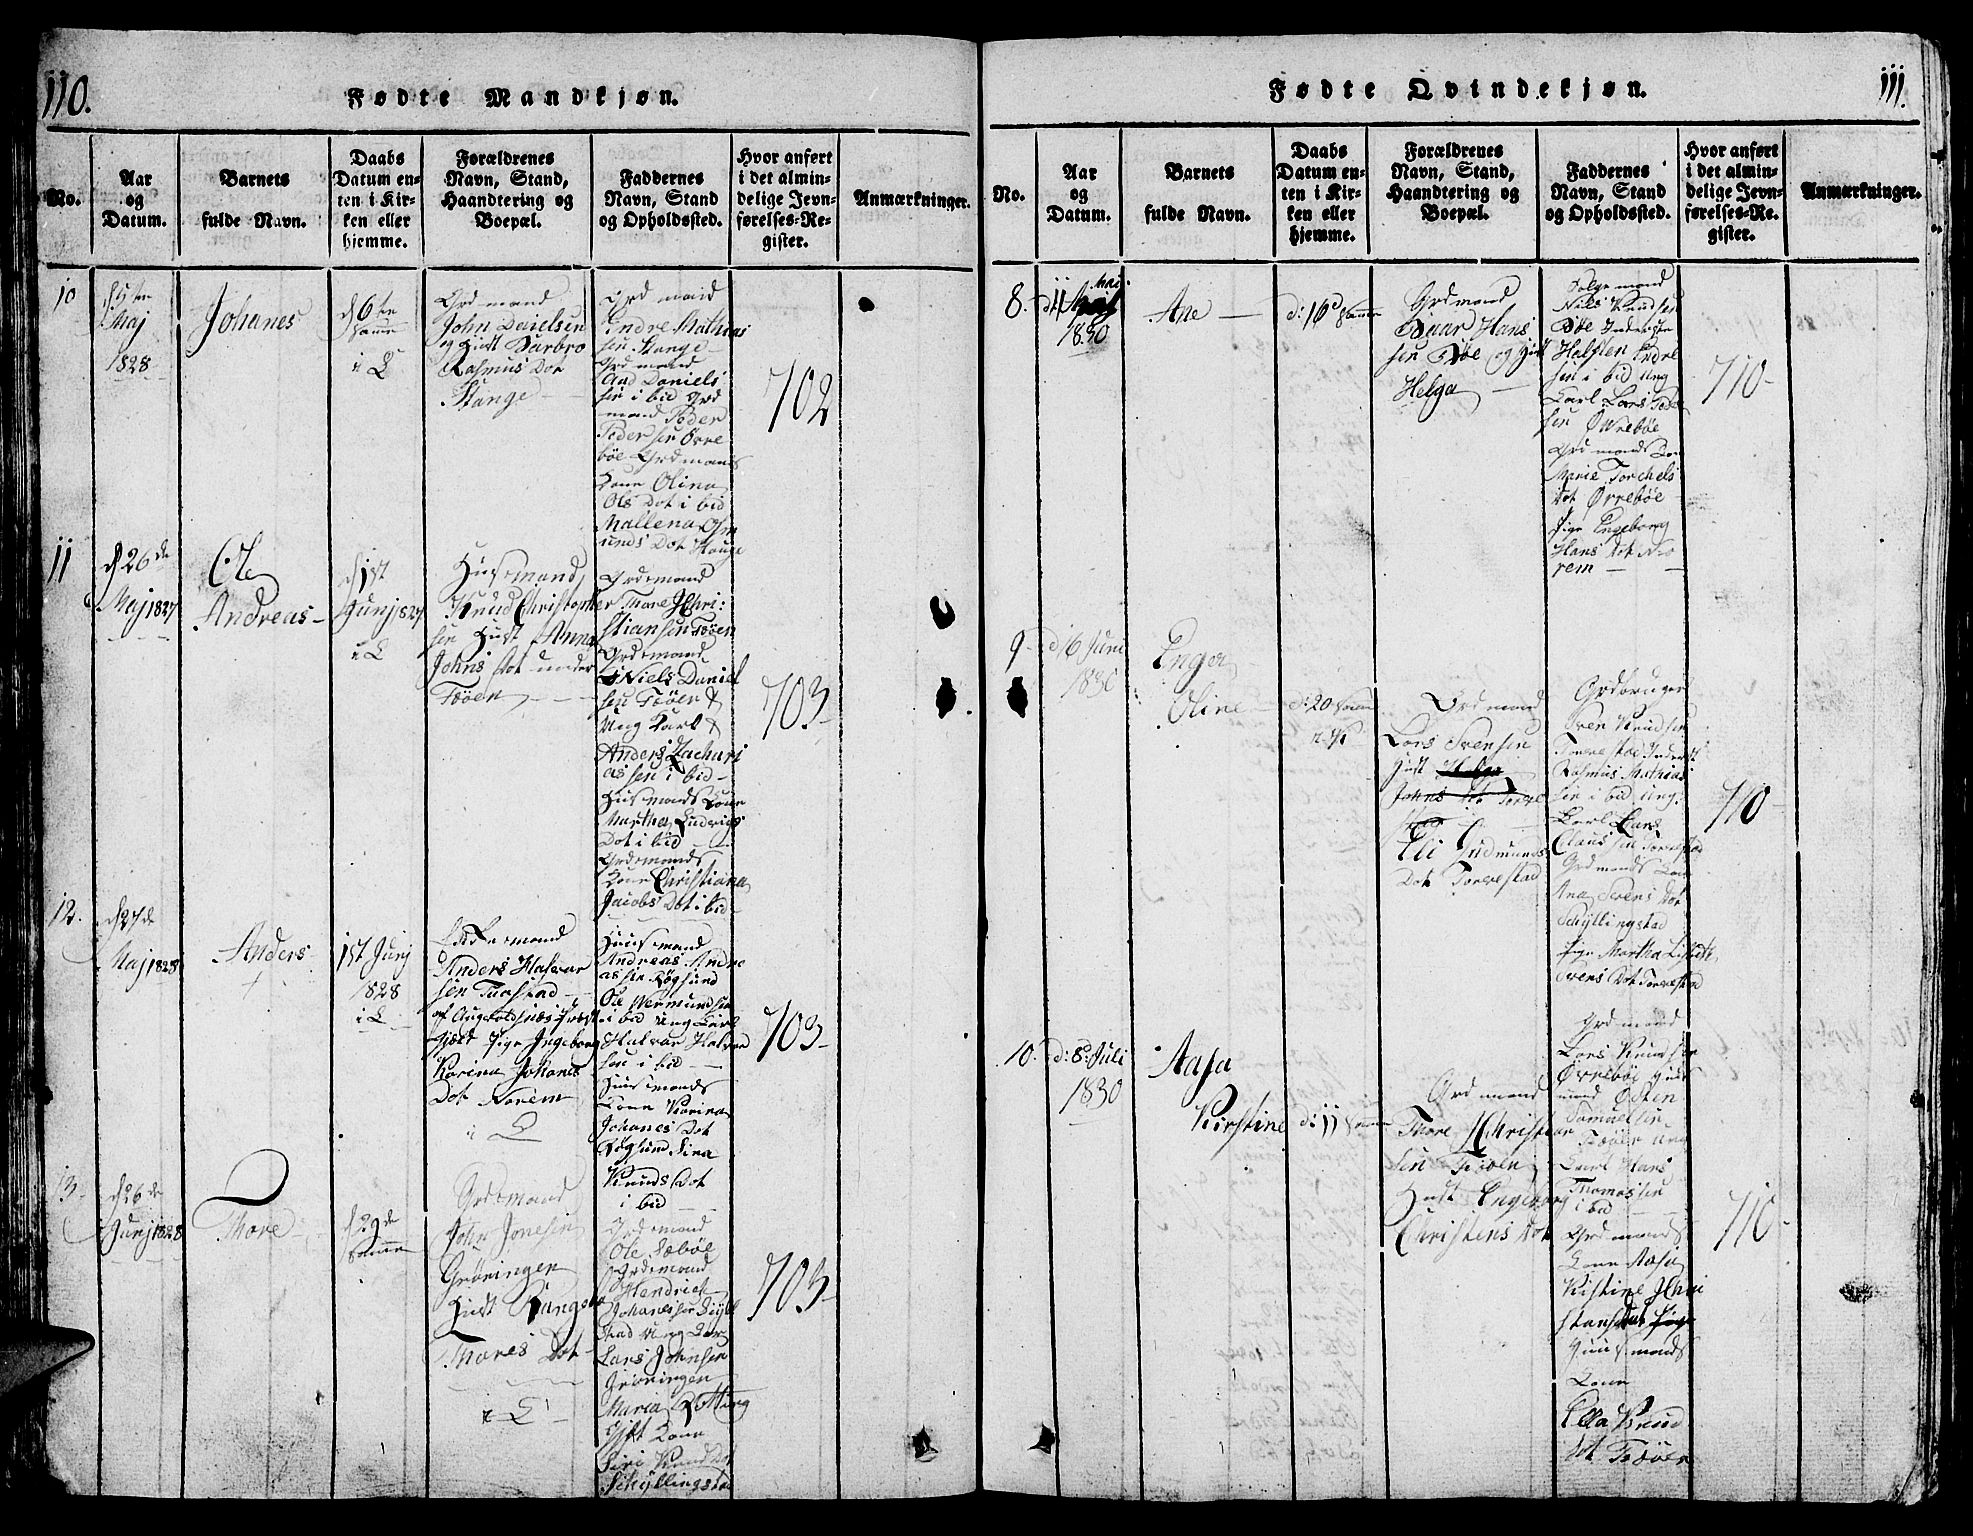 110.
Fødte Mandkjøn.
No.
Aar
og
Datum.
Barnets
fulde Navn.
Daabs
Datum en-
ten i Kir-
ken eller
hjemme.
Forældrenes
Navn, Stand,
Haandtering og
Boepæl.
Faddernes
Navn, Stand
og Opholdssted.
Hvor anført
i det almin-
delige Jevn-
førelses-Re-
gister.
Anmærkninger.
10
Maj
1828
Johanes
d 6te
i K
Grdmand
John
og Hust Barbro
Rasmus Dot
Stange
Grdmand
Endre Mathias
sen Stange
Grdmand
Aad Daniels
sen i bid Grd
mand Peder
Peder sen Øvre
bøe Grdmands
Kone Olina
Ols Dot i bid
Mallena Osm
unds Dot Hauge
702
11
d 26de
Maj 1827
Ole
Andreas
d 1st
Junj 1827
i K
Husmand
Knud Christopher
sen Hust Anna
Johns Dot under
Tøøen
Grdemand
Thore Chri:
stiansen Tøøen
Grdemand
Niels Daniel
sen Tøøen &
Ung Karl &
Anders Zachari
as sen i bid
Husmands Kone
Martha Ludvigs
Dot i bid
Grdemands
Kone Christiana
Jacobs Dot i bid
703
12.
d 27de
Maj 1828
Anders
+
1st Junj
1828
i K
Anders Halvar
sen Tuastad
af Augvaldsnæs Præst
gjeld Pige Ingeborg
Karina Johanes
Dot Norem
Husmand
Andreas Andre
as sen Røgsund
Ole Wermundsen
i bid Ung Karl
Halvar Halvar
sen i bid
Husmands
Kone Karina
Johanes Dot
Røgsund Sira
Knuds Dot
i bid
703
13
d 26de
Junj 1828
Thore
d 29de
Grdemand
John Jonesen
Grøningen
Hust
Thores Dot
i K
Grdemand
Ole Sæbøe
Grdemand
Hendrick
Johanessen
stad Ung Karl
Lars Johnsen
Grøningen
Maria
Gift Kone
Siri Knuds Dot
Schyllingstad
703
111.
Fødte Qvindekjøn.
No.
Aar
og
Datum.
Barnets
fulde Navn.
Daabs
Datum en-
ten i Kir-
ken eller
hjemme.
Forældrenes
Navn, Stand,
Haandtering og
Boepæl.
Faddernes
Navn, Stand
og Opholdssted.
Hvor anført
i det almin-
delige Jevn-
førelses-Re-
gister.
Anmærkninger.
8.
d 11 Mai
1830
Ane
d: 16d
Grdmand
Hans
sen Bøe og Hust
Helga
Niels Knudsen
Bøe
Halsten Endre
sen i bid Ung
Karl Lars Peder
sen Øvrebøe
Grdmands Kone
Marie Torchels
Dot Øvrebøe
Pige Engeborg
Hans Dot No
rem
710
9
d 6 Juni
1830
Enger
Oline
d: 20
Grdmand
Lars Svensen
Hust Helga
Johns Dot
Eli Gudmunds
Dot Torvestad
Grdbruger
Sven Knudsen
Torvestad
Rasmus Mathias
sen i bid Ung
Karl Lars
Claussen Torvestad
Grdmands Kone
Ana Svens Dot
Schyllingstad
Pige Martha Lisbeth
Svens Dot Torvestad
710
10.
d: 8d: Juli
1830
Aasa
Kirstine
d: 11
Grdmand
Thore Christian
sen Tøøen
Hust Engeborg
Christens Dot
Grdmand
Lars Knudsen
Øvrebøe Huus
mand Østen
Samuelsen
Tøøen Ung
Karl Hans
Thomassen
i bid
Grdmands
Kone Aasa
Kistine Chri
stians Dot Pige
Huusmands
Kone
Ella Knud
Dot Tøøen
710